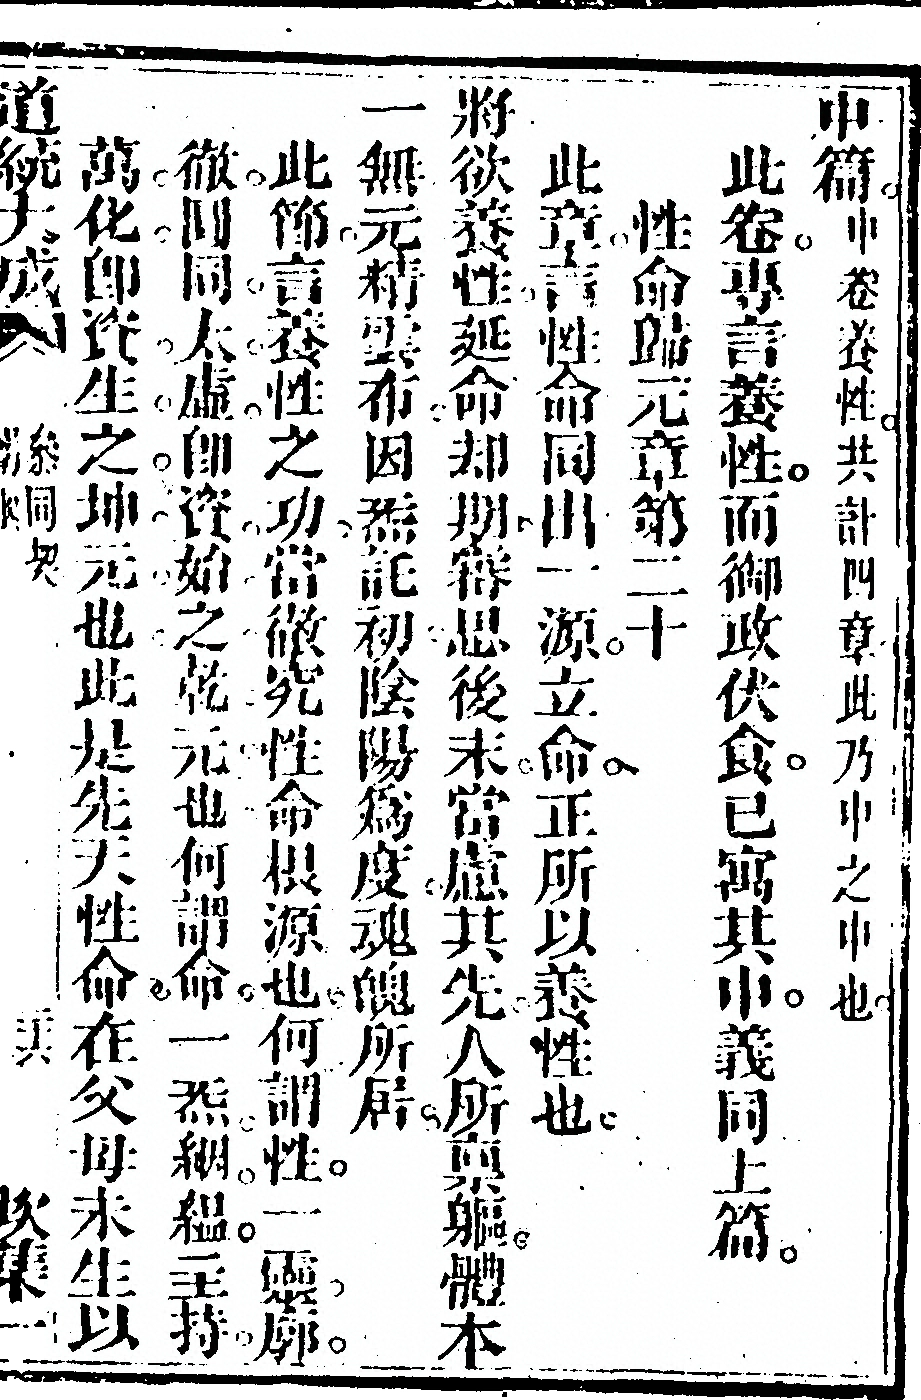 中篇。中卷養性。共計四章此乃中之中也。
此卷。專言養性。而御政伏食。已寓其中。義同上篇。
性命歸元章第二十
此章。言性命同出一源。立命。正所以養性也。
將欲養性。延命却期。審思後末。當慮其先。人所稟軀。體本
一無。元精雲布。因炁託初。陰陽爲度。魂魄所居。
此節。言養性之功。當徹究性命根源也。何謂性。一靈廓
徹。同同太虛。卽資始之乾元也。何謂命。一炁絪縕。主持
萬化。卽資生之坤元也。此是先天性命。在父母未生以
道統大成 參同契 坎集一